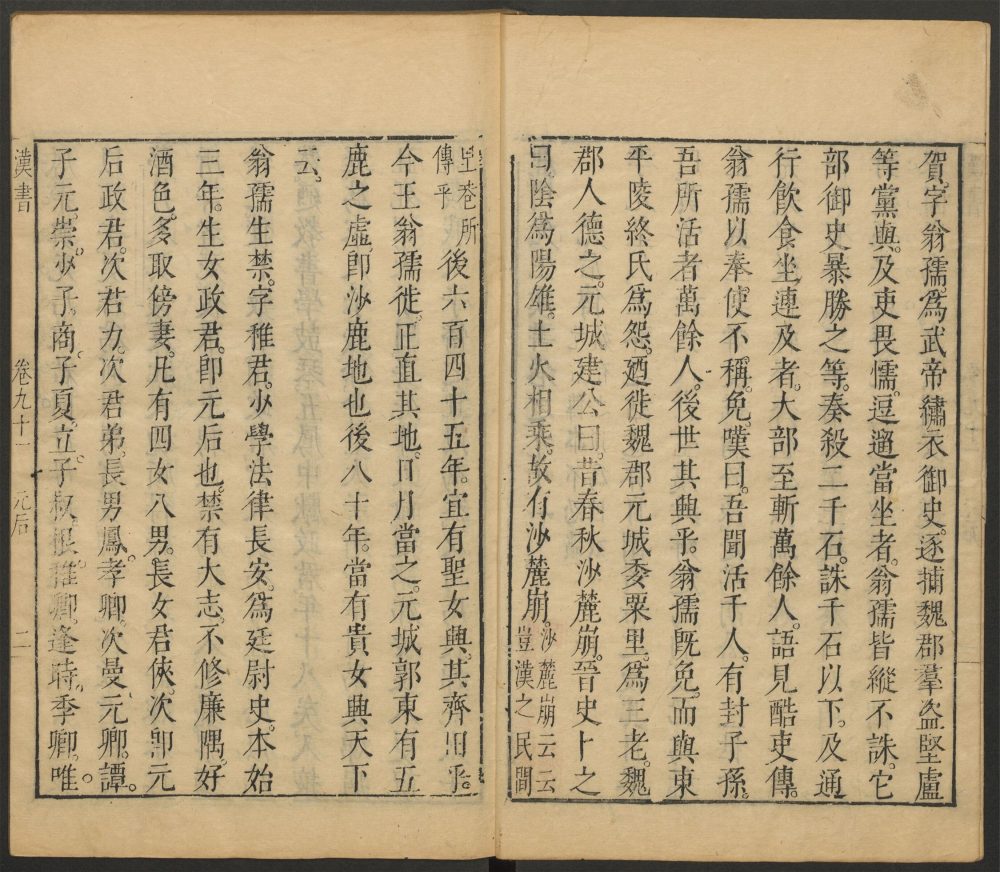 賀。字翁孺。爲武帝繡衣御史。逐捕魏郡羣盜堅盧
等黨與。及吏畏懦。逗遛當坐者。翁孺皆縱不誅。它
部御史暴勝之等。奏殺二千石。誅千石以下。及通
行飲食坐連及者。大部至斬萬餘人。語見酷吏傳。
翁孺以奉使不稱。免。嘆曰。吾聞活千人。有封子孫。
吾所活者萬餘人。後世其興乎。翁孺既免。而與東
平陵終氏爲怨。廼徙魏郡元城委粟里。爲三老。魏
郡人德之。元城建公曰。昔春秋沙麓崩。晉史卜之
曰。陰爲陽雄。土火相乘。故有沙麓崩。沙麓崩云云
豈漢之民間
巷所
傳乎
後六百四十五年。宜有聖女興。其齊田乎。
今王翁孺徙。正直其地。日月當之。元城郭東有五
鹿之虛。卽沙鹿地也後八十年。當有貴女興天下
云。
翁孺生禁。字稚君。少學法律長安。爲廷尉史。本始
三年。生女政君。卽元后也。禁有大志。不修廉隅。好
酒色。多取傍妻。凡有四女八男。長女君俠。次卽元
后政君。次君力。次君弟。長男鳳。孝卿。次曼。元卿。譚。
子元。崇。少子。商。子夏。立。子叔。根。稚卿。逢時。季卿。唯。
漢書
卷九十一
元后
二